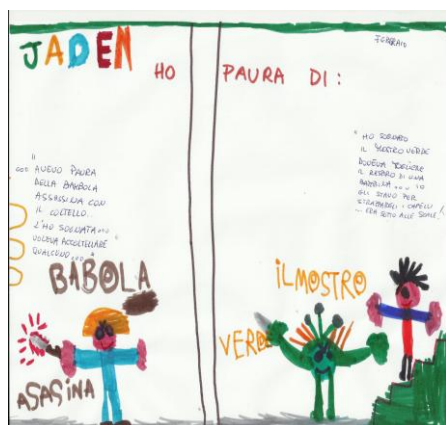 JADEN
HO PAURA DI:
"... AVEVO PAURA
DELLA BAMBOLA
ASSASSINA CON
IL COLTELLO...
L'HO SOGNATA...
VOLEVA ACCOLTELLARE
QUALCUNO..."
BABOLA
ASASINA
"HO SOGNATO
IL MOSTRO VERDE
DOVEVA TOGLIERE
IL DI UNA
BAMBINA... IO
GLI STAVO PER
STRAPPARGLI I CAPELLI
... ERA SOTTO ALLE SCALE!"
iL MOSTRO
VERDE